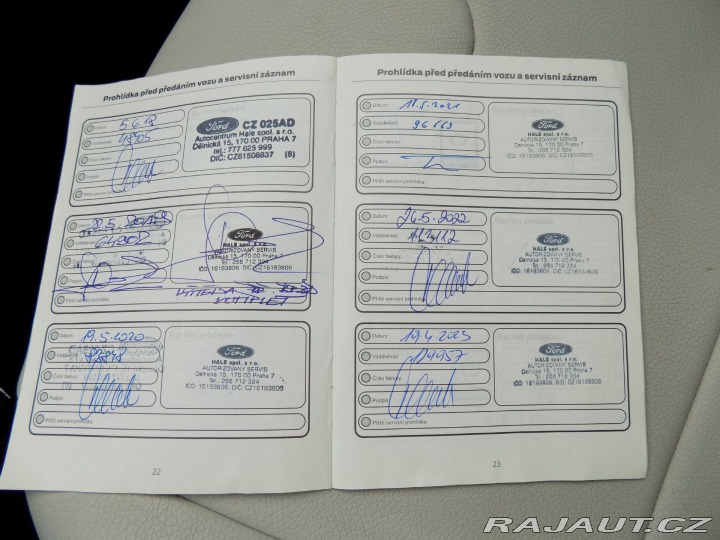 Prohlídka před předáním vozu a servisní záznam
Datum 5.6.18
Vzdálenost
Číslo faktury
Podpis
Příští servisní prohlídka
Ford CZ 025AD
Autocentrum Hale spol. s r.o.
Dělnická 15, 170 00 PRAHA 7
tel.: 777 625 999
DIČ: CZ61508837 (8)
Datum
Vzdálenost
Číslo faktury
Podpis
Příští servisní prohlídka
Ford
HALE spol. s r.o.
AUTORIZOVANÝ SERVIS
Dělnická 15, 170 00 Praha 7
Tel.: 266 712 324
IČO: 16193806, DIČ: CZ16193806
Datum 19.5.2020
Vzdálenost
Číslo faktury
Podpis
Příští servisní prohlídka
Ford
HALE spol. s r.o.
AUTORIZOVANÝ SERVIS
Dělnická 15, 170 00 Praha 7
Tel.: 266 712 324
IČO: 16193806, DIČ: CZ16193806
22
Prohlídka před předáním vozu a servisní záznam
Datum 18.5.2021
Vzdálenost 96 163
Číslo faktury
Podpis
Příští servisní prohlídka
Ford
HALE spol. s r.o.
AUTORIZOVANÝ SERVIS
Dělnická 15, 170 00 Praha 7
Tel.: 266 712 324
IČO: 16193806, DIČ: CZ16193806
Datum 24.5.2022
Vzdálenost
Číslo faktury
Podpis
Příští servisní prohlídka
Ford
HALE spol. s r.o.
AUTORIZOVANÝ SERVIS
Dělnická 15, 170 00 Praha 7
Tel.: 266 712 324
IČO: 16193806, DIČ: CZ16193806
Datum 19.4.2023
Vzdálenost 119957
Číslo faktury
Podpis
Příští servisní prohlídka
Ford
HALE spol. s r.o.
AUTORIZOVANÝ SERVIS
Dělnická 15, 170 00 Praha 7
Tel.: 266 712 324
IČO: 16193806, DIČ: CZ16193806
23
RAJAUT.CZ